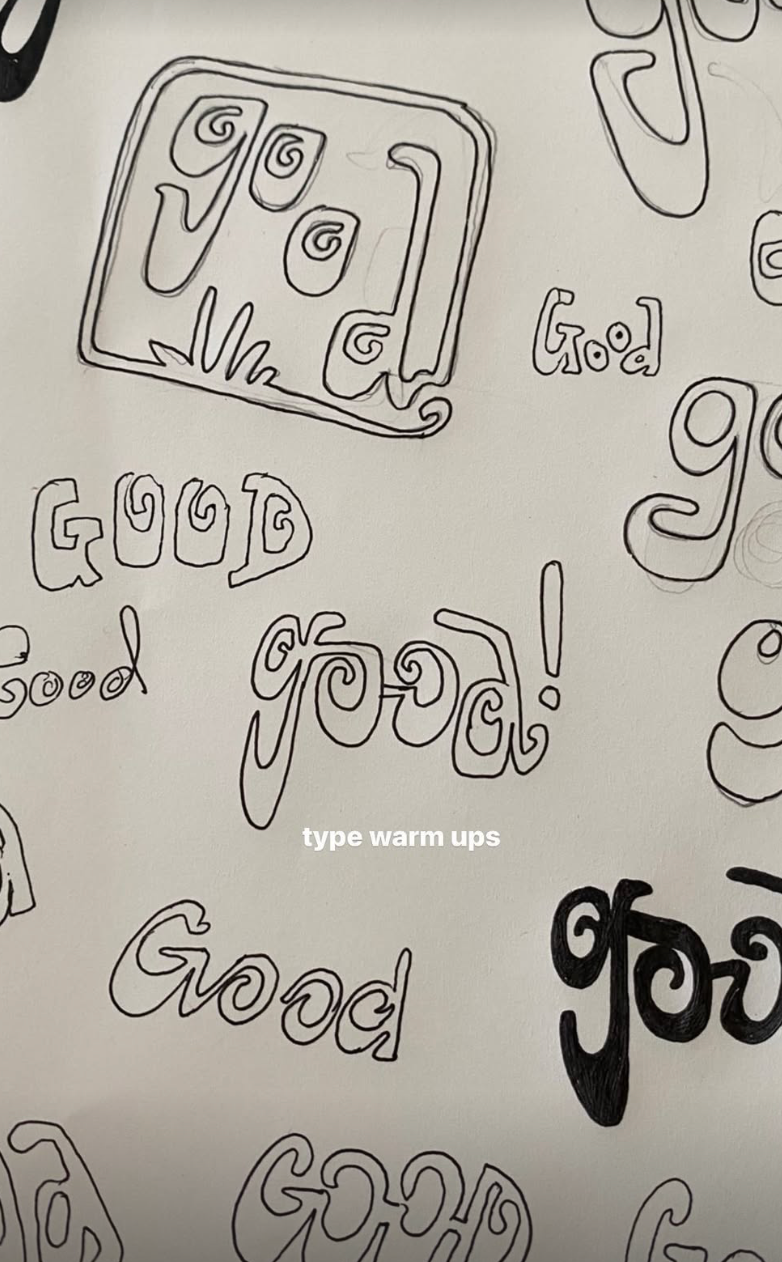 go
good
Good
go
GOOD
Good
good!
type warm ups
Good
goo
GOOD